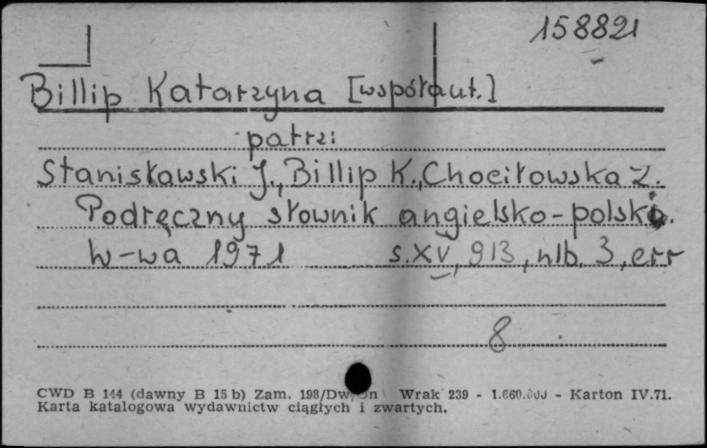 158821
Billip Katarzyna [współaut.]
patrz:
Stanisławski J., Billip K., Chociłowska Z.
Podręczny słownik angielsko-polski.
W-wa 1971 s. XV, 913, nlb. 3, err
8
CWD B 144 (dawny B 15 b) Zam. 198/Dw/ Wrak 239 - 1.660.000 - Karton IV.71.
Karta katalogowa wydawnictw ciągłych i zwartych.